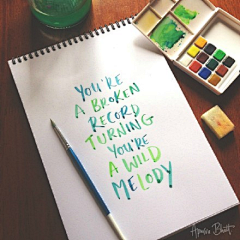 YOU'RE
A BROKEN
RECORD
TURNING
YOU'RE
A WILD
MELODY